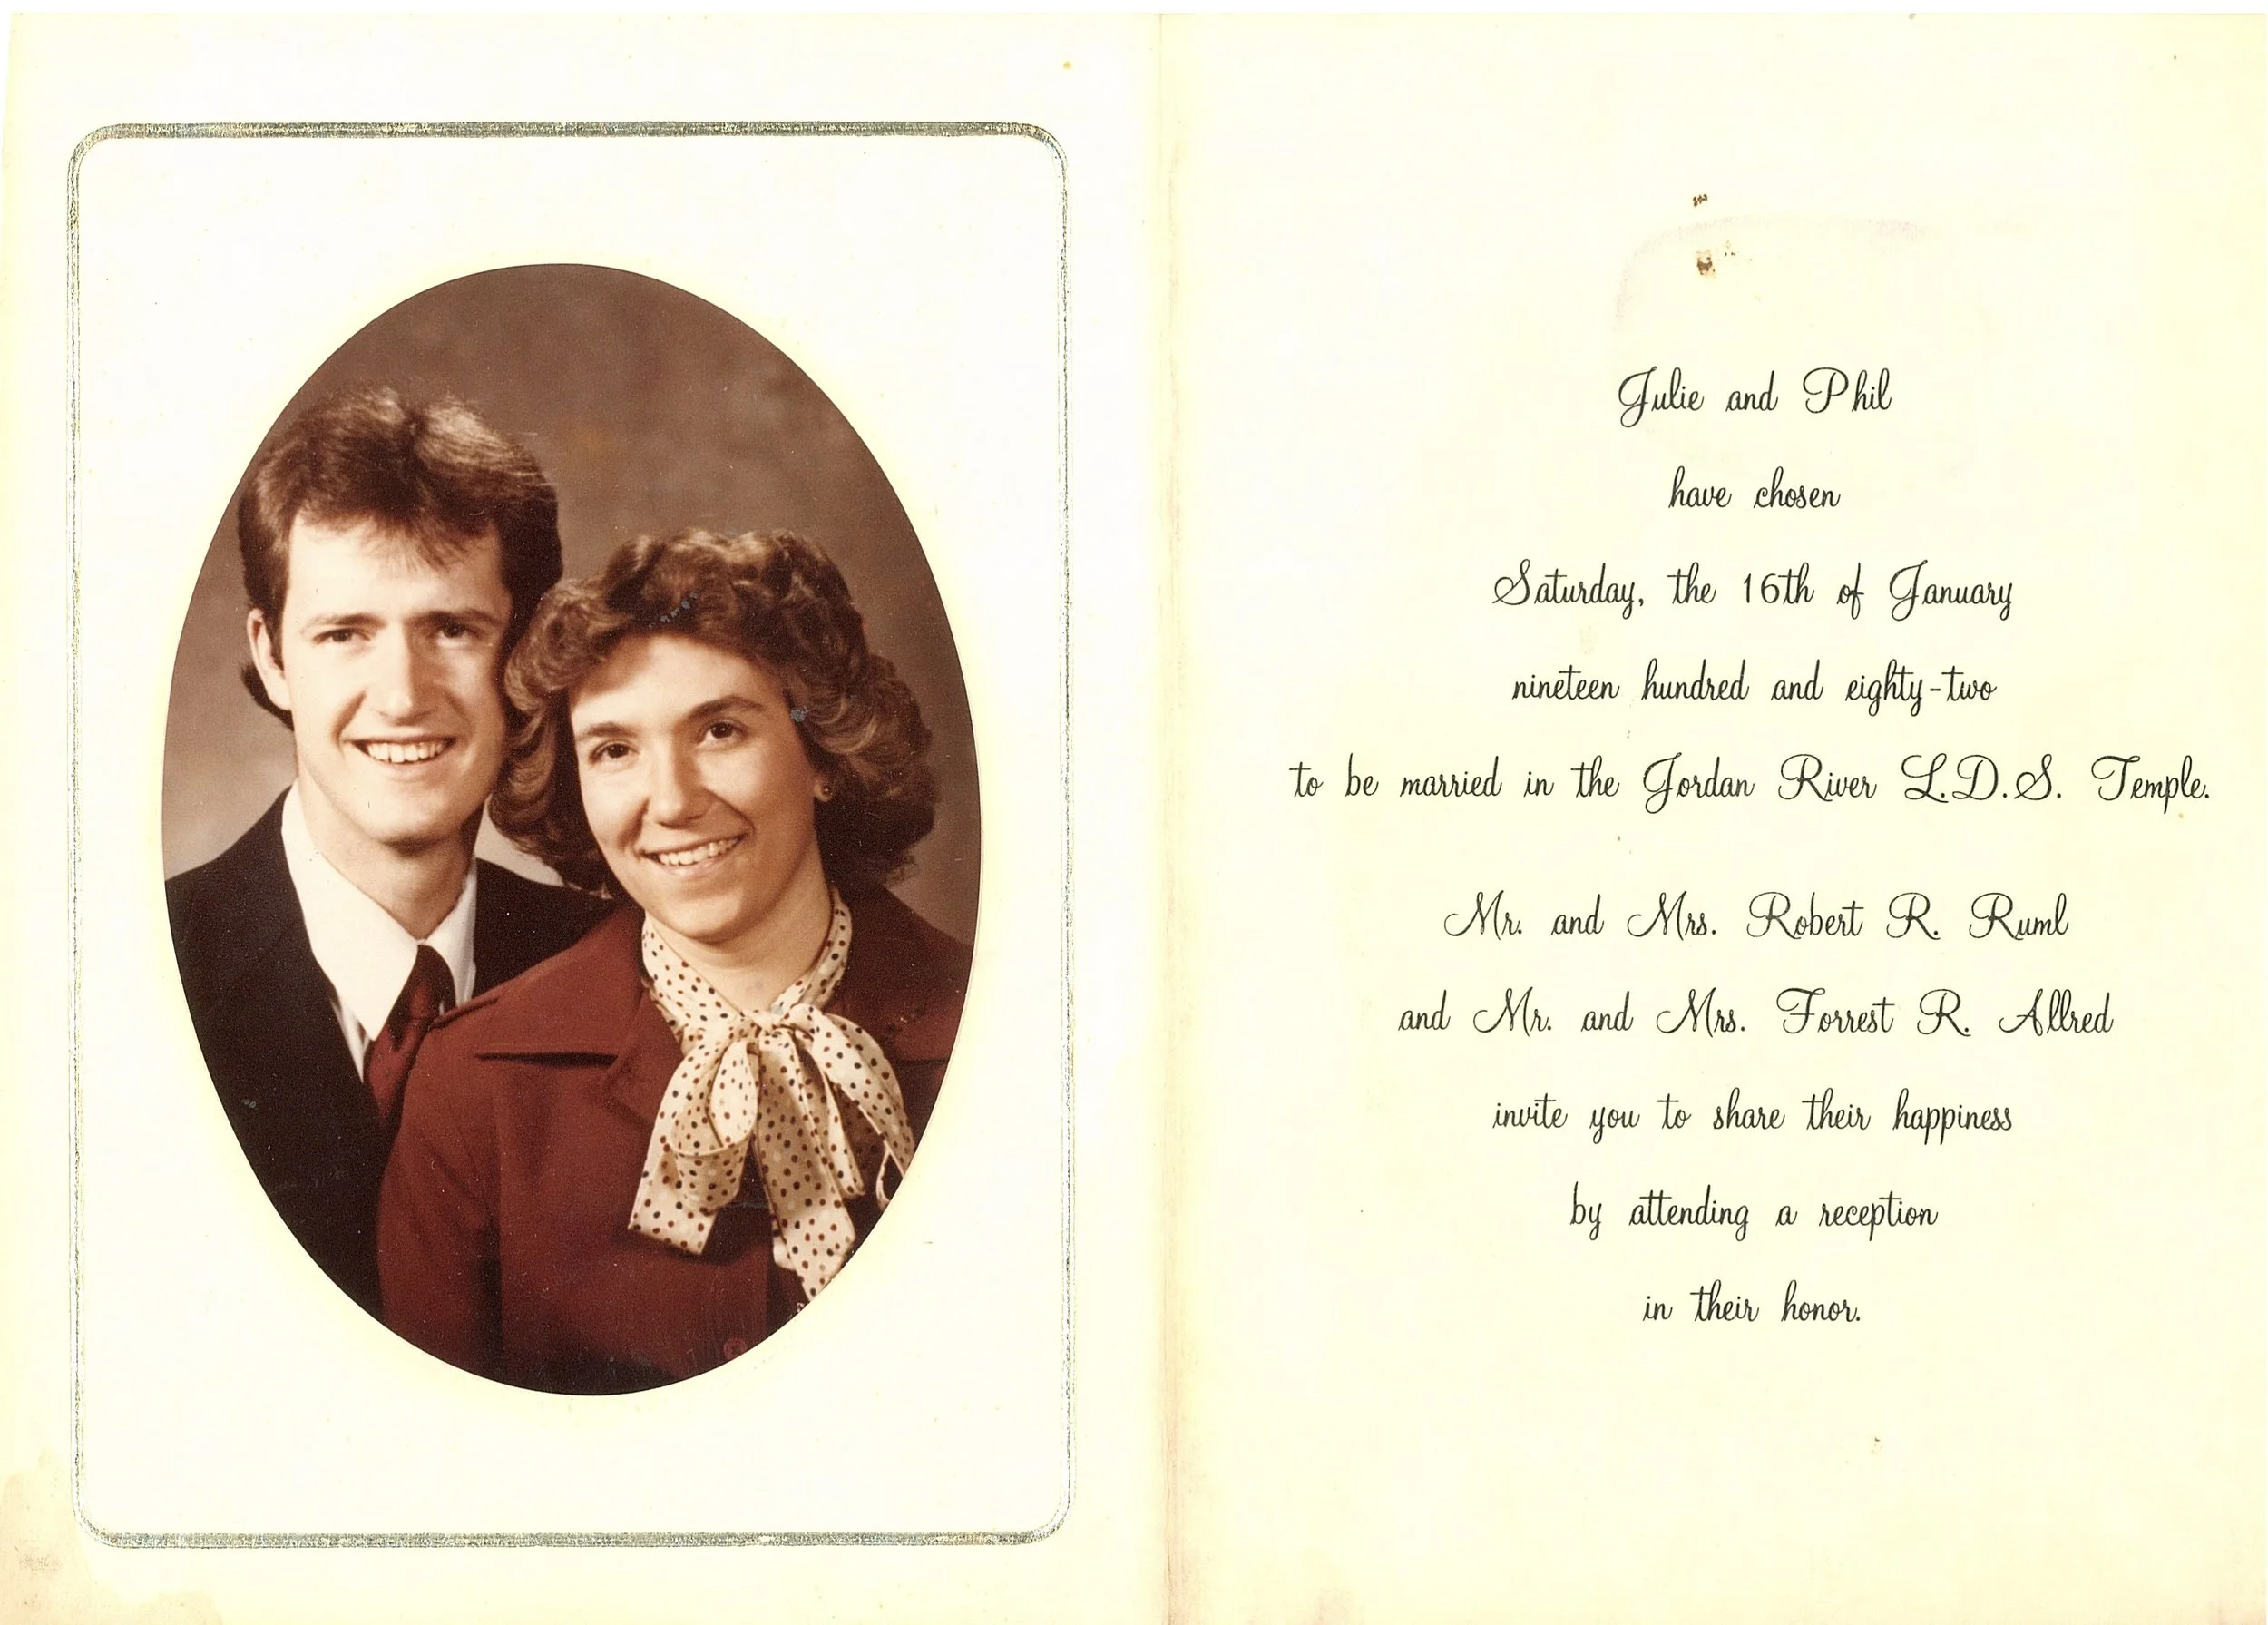 Julie and Phil
have chosen
Saturday, the 16th of January
nineteen hundred and eighty-two
to be married in the Jordan River L.D.S. Temple.
Mr. and Mrs. Robert R. Ruml
and Mr. and Mrs. Forrest R. Allred
invite you to share their happiness
by attending a reception
in their honor.